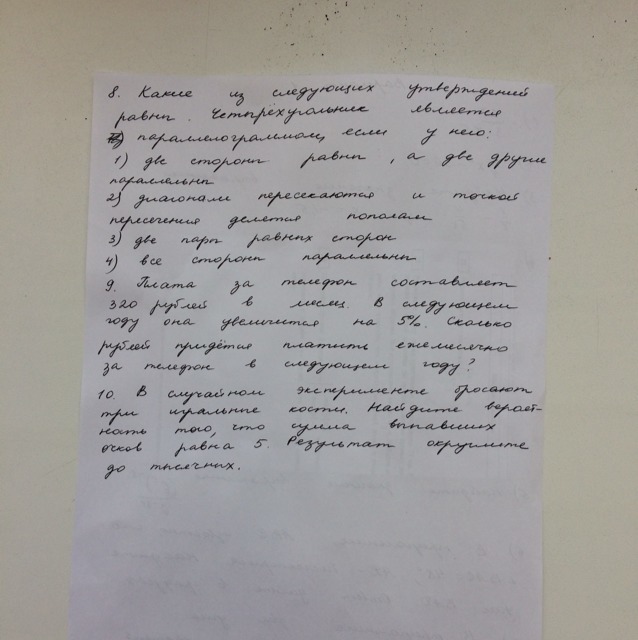 8. Какие из следующих утверждений
равны. Четырёхугольник является
параллелограммом, если у него:
1) две стороны равны, а две другие
параллельны
2) диагонали пересекаются и точкой
пересечения делятся пополам
3) две пары равных сторон
4) все стороны параллельны
9. Плата за телефон составляет
320 рублей в месяц. В следующем
году она увеличится на 5%. Сколько
рублей придётся платить ежемесячно
за телефон в следующем году?
10. В случайном эксперименте бросают
три игральные кости. Найдите вероят-
ность того, что сумма выпавших
очков равна 5. Результат округлите
до тысячных.